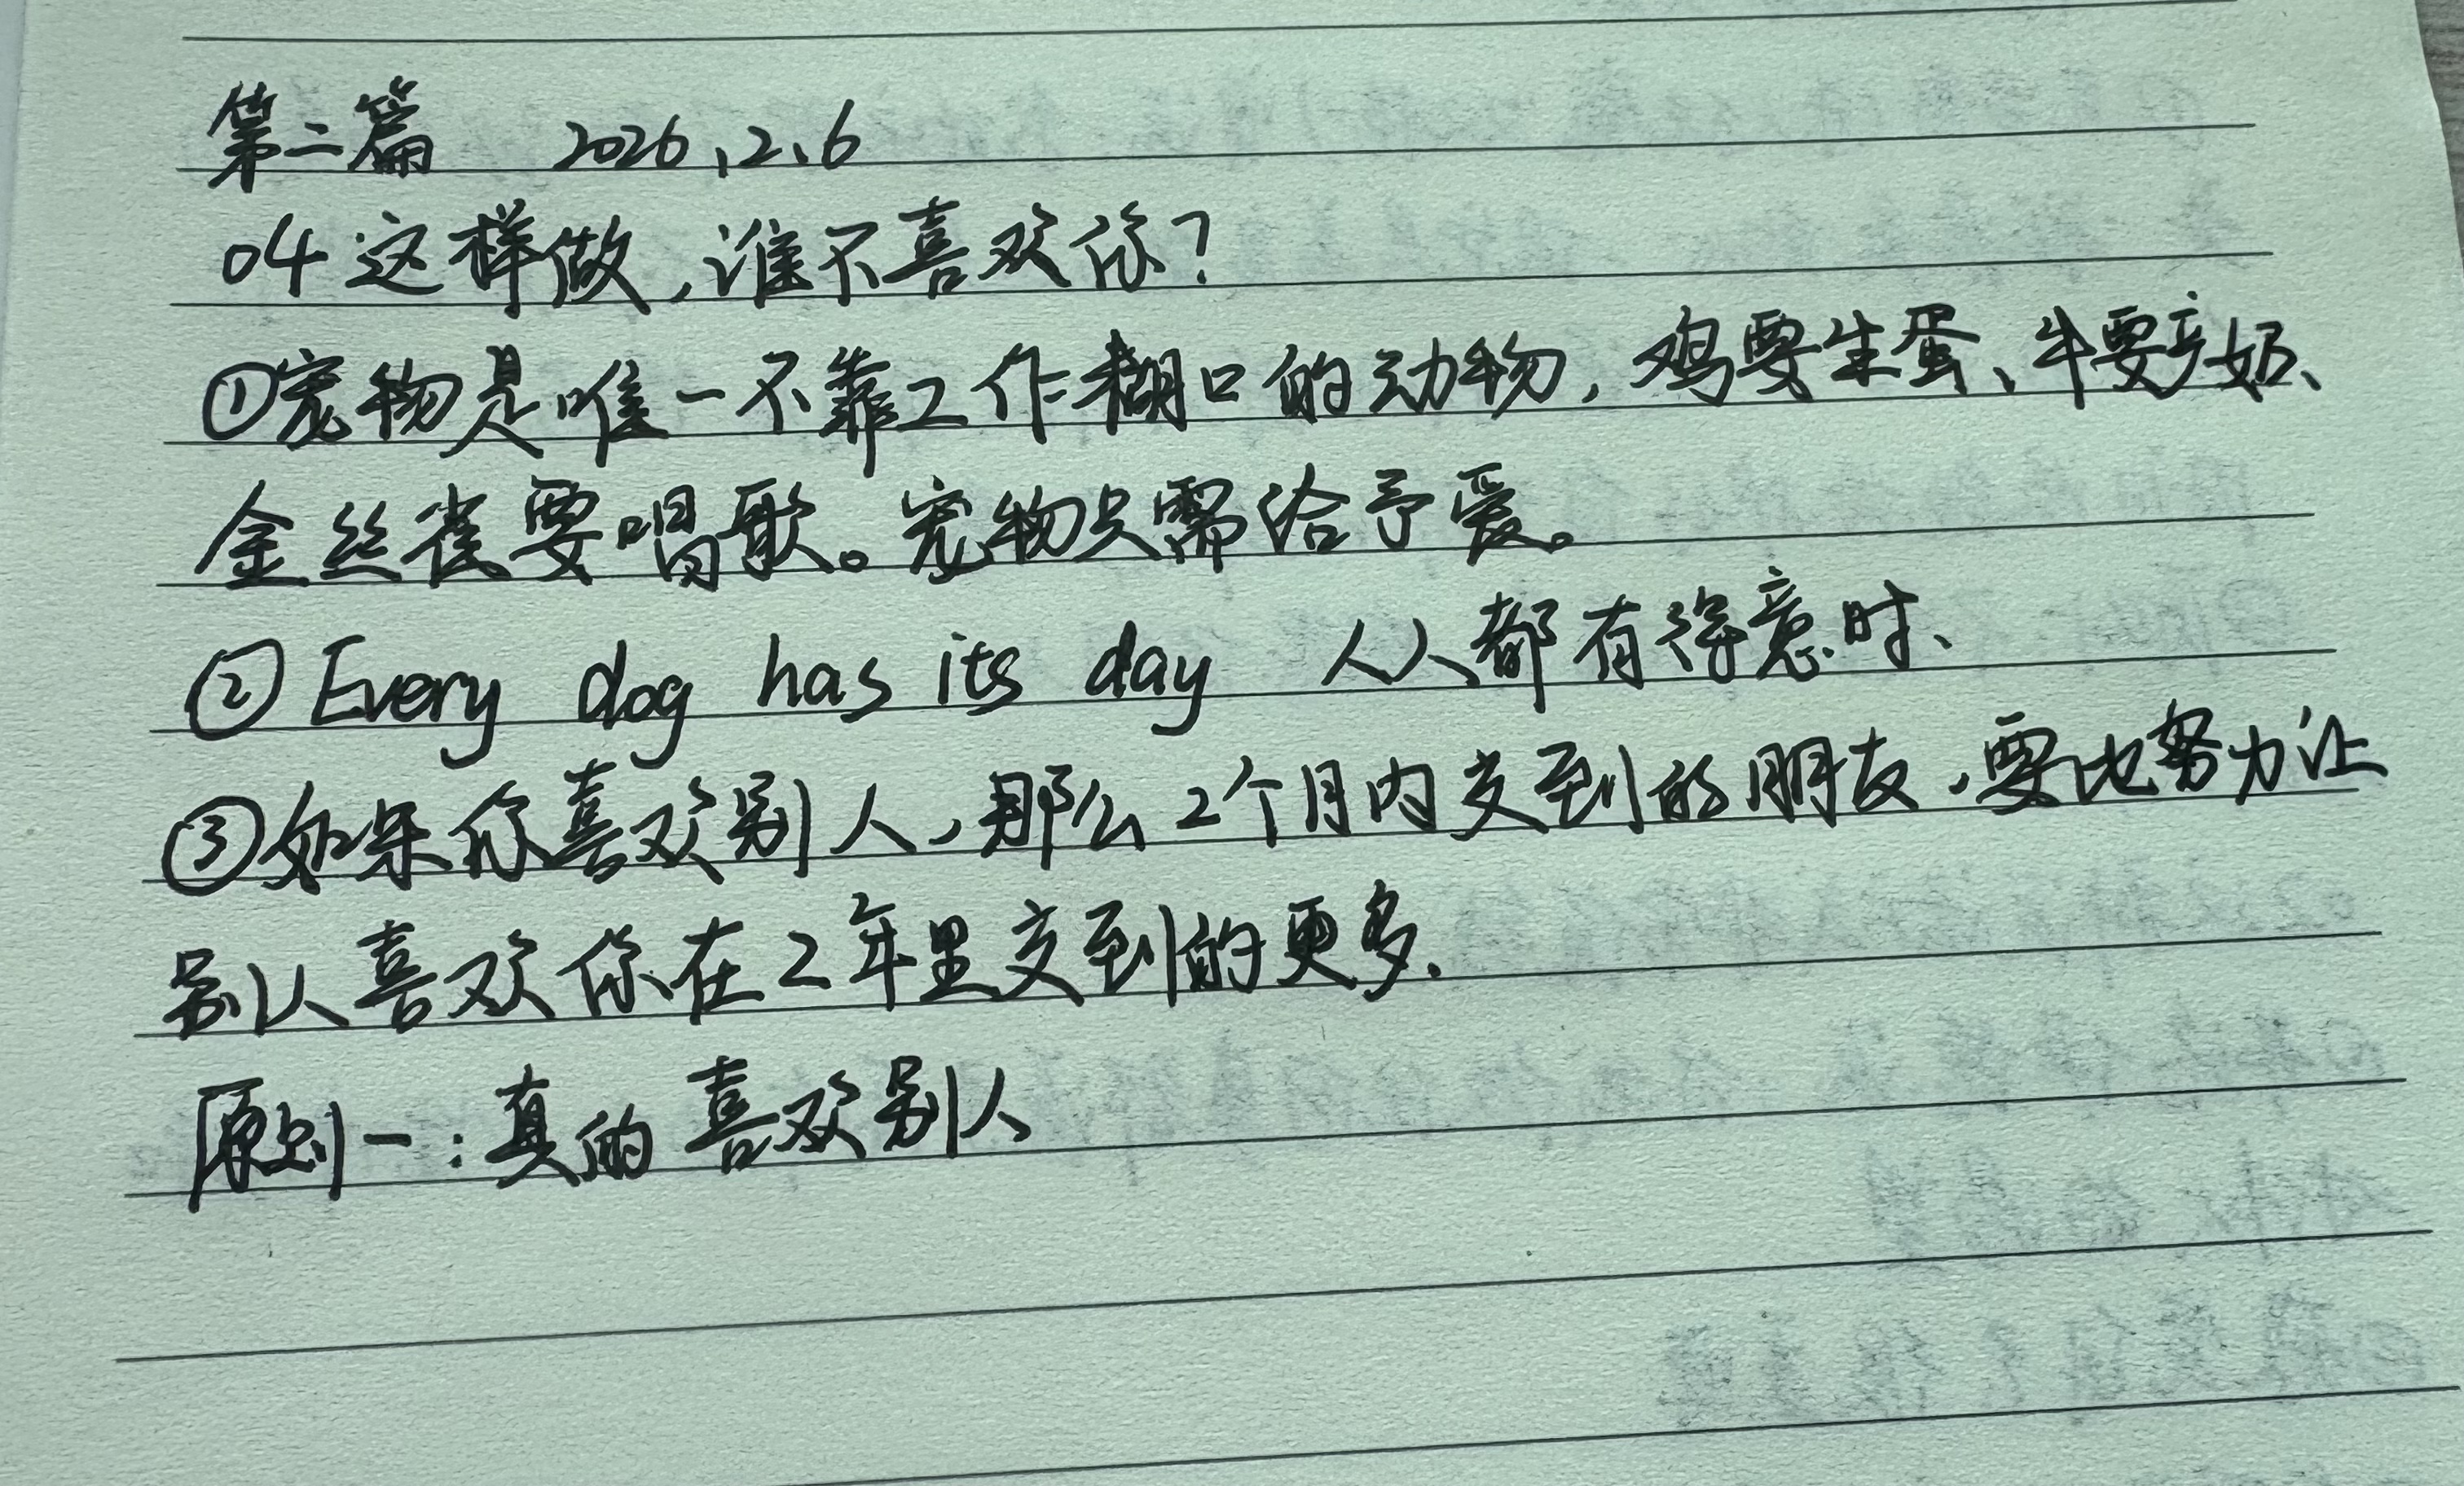 第二篇 2026.2.6
04 这样做,谁不喜欢你?
①宠物是唯一不靠工作糊口的动物,鸡要生蛋、牛要产奶、
金丝雀要唱歌。宠物只需给予爱。
② Every dog has its day 人人都有得意时、
③如果你喜欢别人,那么2个月内交到的朋友,要比努力让
别人喜欢你在2年里交到的更多.
原则一:真的喜欢别人